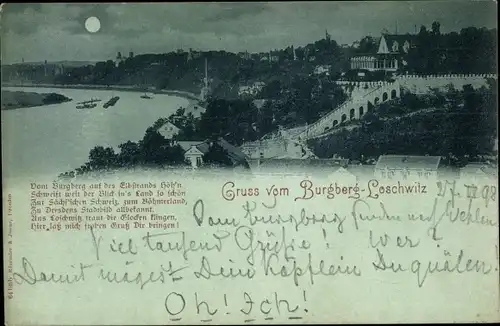 Vom Burgberg auf des Elbstrands Höh'n
Schweift weit der Blick in's Land so schön
Zur Sächs'schen Schweiz, zum Böhmerland,
Zu Dresdens Stadtbild allbekannt.
Aus Loschwitz traut die Glocken klingen,
Hier laß mich frohen Gruß Dir bringen!
Gruss vom Burgberg-Loschwitz
98
Vom Burgberg
Viel tausend Grüße! Wer?
Damit magst Dein Köpflein Du quälen.
Oh! Ich!